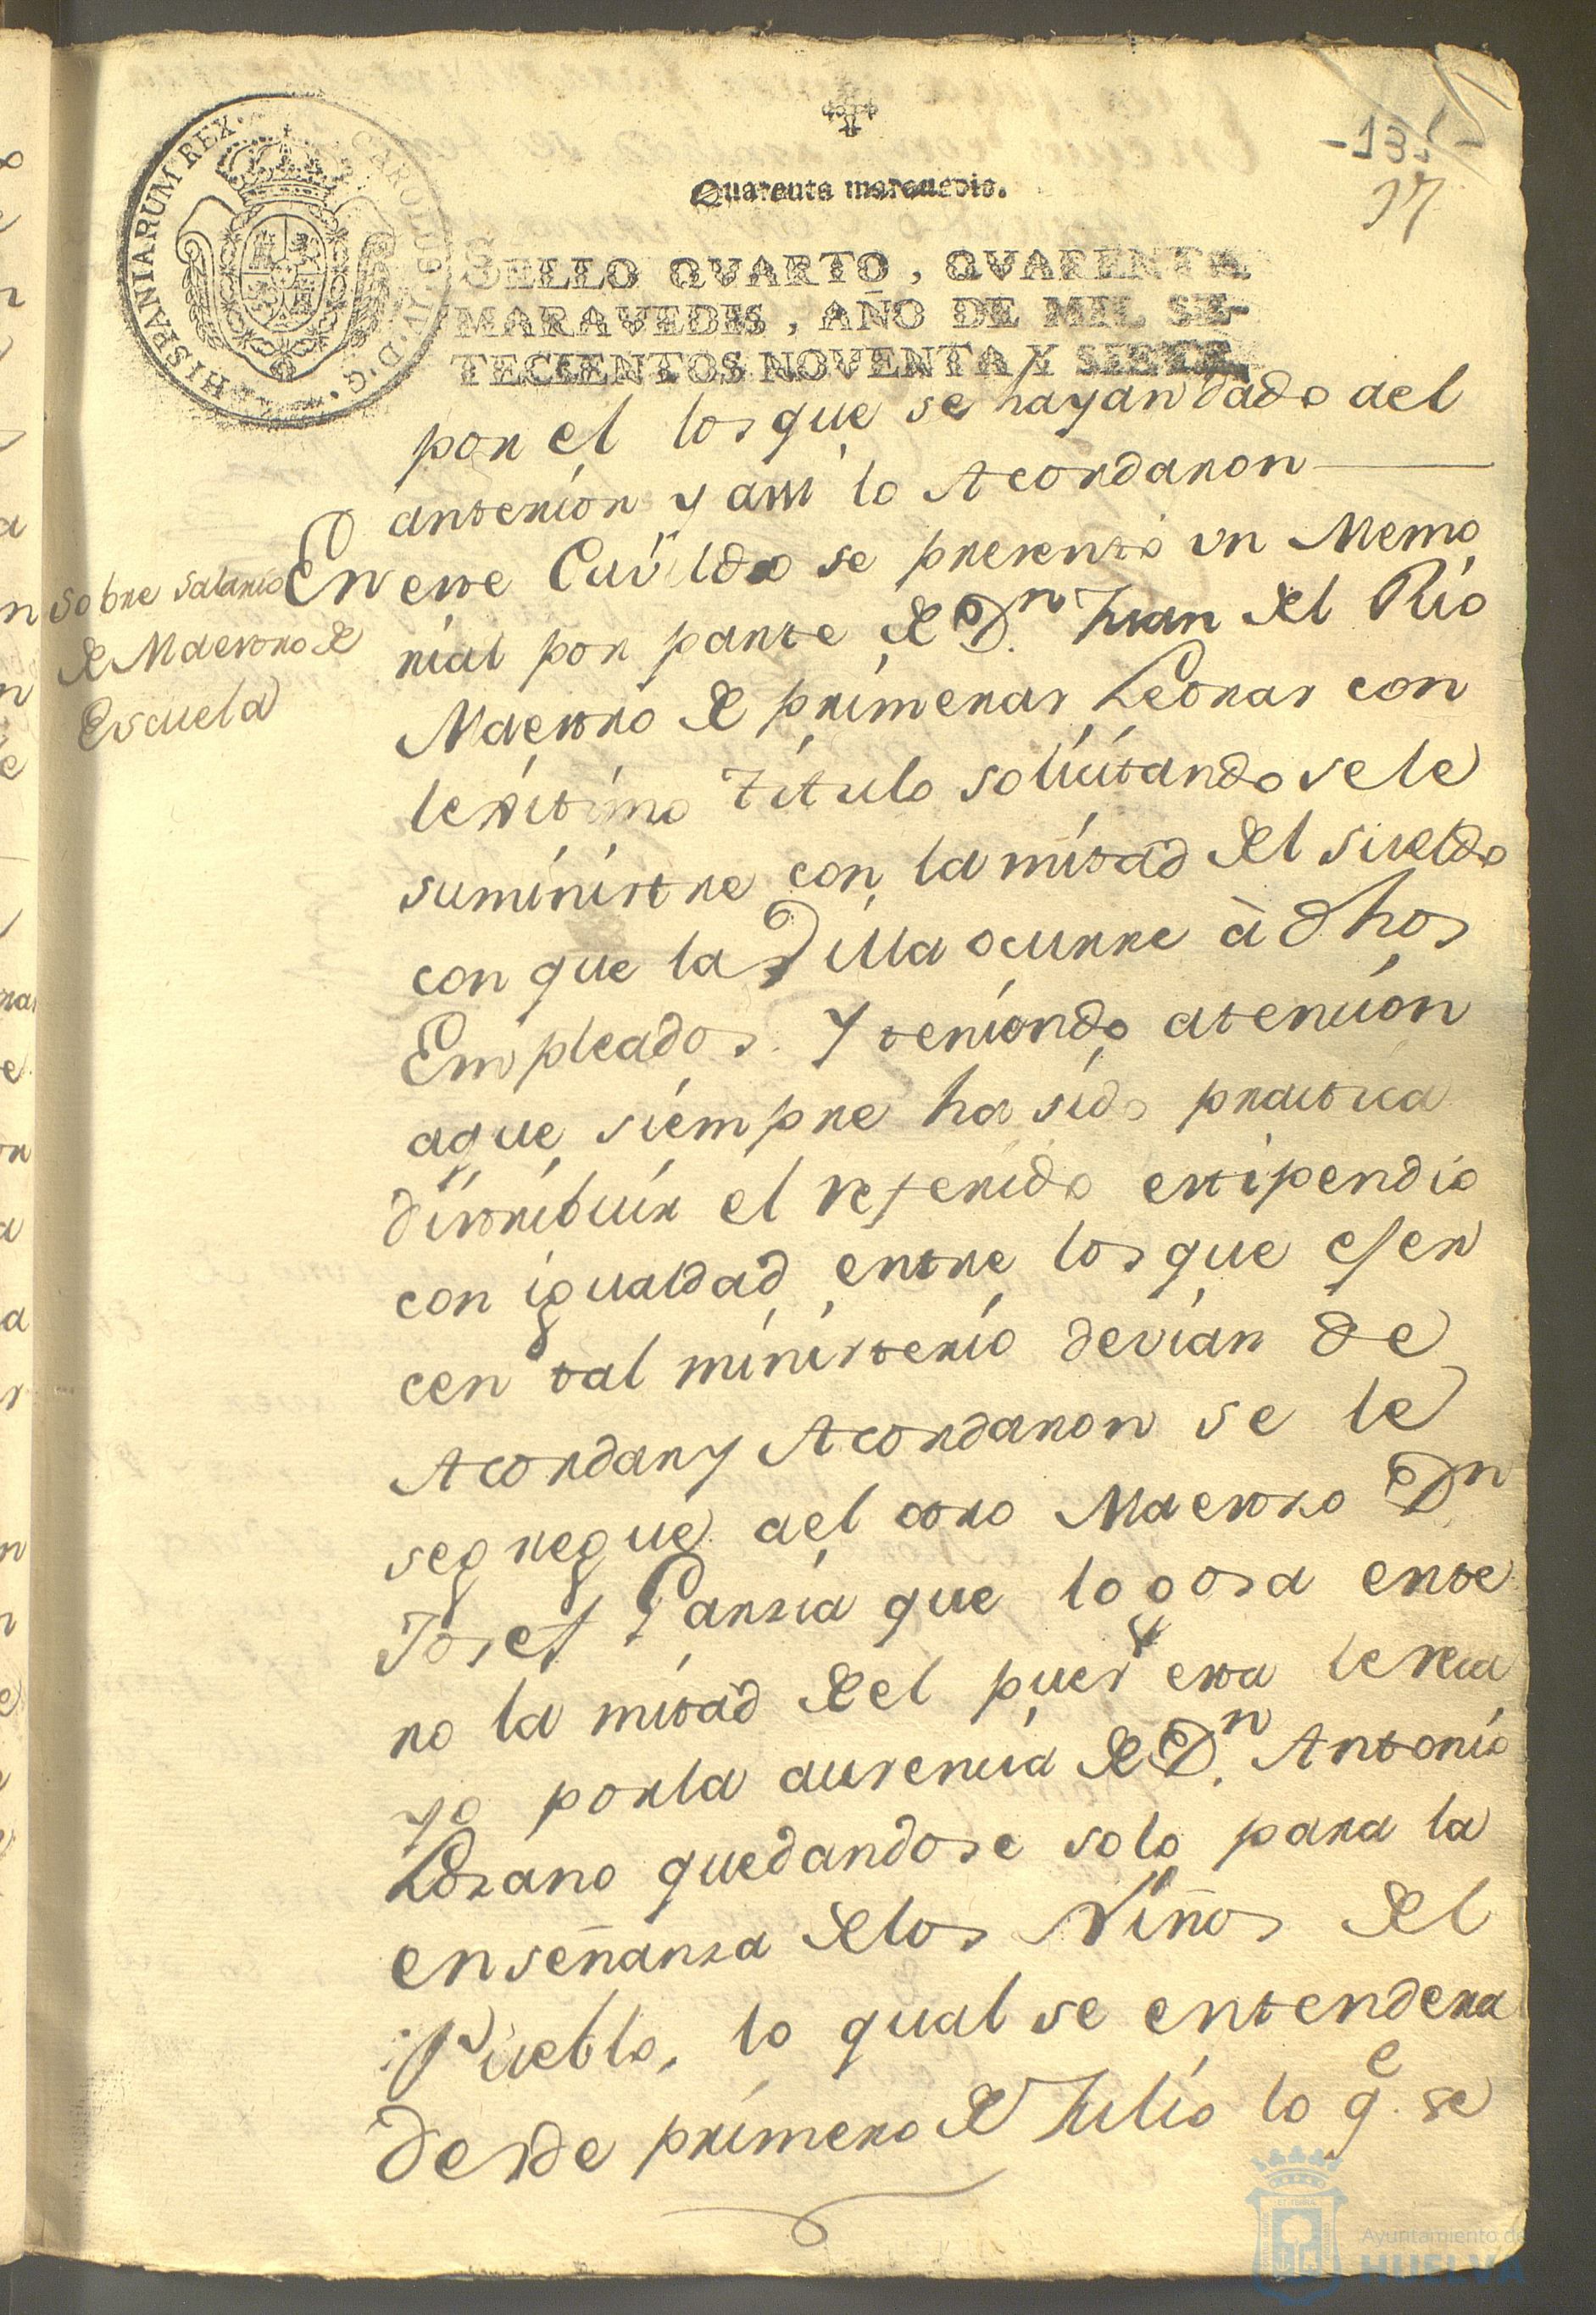 -131-
17
Quarenta maravedis.
HISPANIARUM REX. CAROLUS IV. D. G.
SELLO QVARTO, QVARENTA
MARAVEDIS, AÑO DE MIL SE-
TECIENTOS NOVENTA Y SIETE
por el los que se hayan dado ael
anterior y assi lo Acordaron
Sobre Salario
de Maestro de
Escuela
En este Cavildo se presentó un Memo
rial por parte de Dn. Juan del Rio
Maestro de primeras Letras con
lexitimo titulo solicitando se le
suministre con la mitad del sueldo
con que la Villa ocurre à dhos
Empleados. Y teniendo atencion
aque siempre ha sido practica
distribuir el referido estipendio
con igualdad entre los que ejer
cen tal ministerio devian de
Acordar y Acordaron se le
segregue ael otro Maestro Dn
Josef Garzia que lo gosa ente
ro la mitad de el pues esta le reca
yo por la ausencia de Dn. Antonio
Lozano quedandose solo para la
enseñanza de los Niños del
Pueblo, lo qual se entendera
desde primero de Julio lo qe. se
Ayuntamiento de
HUELVA